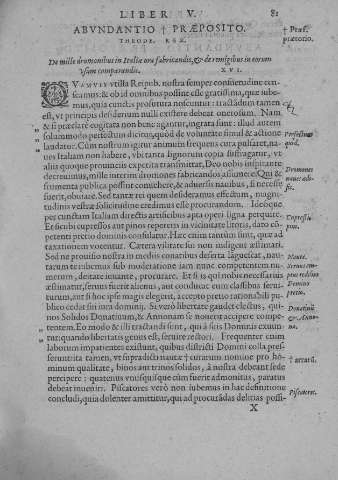 LIBER V. 81
ABVNDANTIO † PRÆPOSITO.
THEODE. REX.
† Præf.
prætorio.
De mille dromonibus in Italiæ ora fabricandis, & de remigibus in eorum
vsum comparandis. XVI.
QVAMVIS vtilia Reipub. nostra semper consuetudine cen-
seamus: & ob id omnibus possint esse gratissima, quæ iube-
mus, quia cunctis profutura noscuntur: tractandum tamen
est, vt principis desiderium nulli existere debeat onerosum. Nam
& si præclare cogitata non bene agantur, ingrata sunt: illud autem
solummodo perfectum dicitur, quod de voluntate simul & actione
laudatur. Cùm nostrum igitur animum frequens cura pulsaret, na-
ues Italiam non habere, vbi tanta lignorum copia suffragatur, vt
aliis quoque prouinciis expetita transmittat, Deo nobis inspirante
decreuimus, mille interim dromones fabricandos assumere. Qui &
frumenta publica possint conuehere, & aduersis nauibus, si necesse
fuerit, obuiare. Sed tantæ rei quem desideramus effectum, magni-
tudinis vestræ solicitudine credimus esse procurandum. Ideoque
per cunctam Italiam directis artificibus apta operi ligna perquire.
Et sicubi cupressos aut pinos repereris in vicinitate litoris, dato co-
petenti pretio dominis consulatur. Hæc enim tantum sunt, quæ ad
taxationem vocentur. Cætera vilitate sui non indigent æstimari.
Sed ne prouisio nostra in mediis conatibus deserta languescat, nau-
tarum te iubemus sub moderatione iam nunc competentem nu-
merum, deitate iuuante, procurare. Et si is qui nobis necessarius
æstimatur, seruus fuerit alienus, aut conducat eum classibus serui-
turum, aut si hoc ipse magis elegerit, accepto pretio rationabili pu-
blico cedat sui iura dominij. Si verò libertate gaudet electus, qui-
nos Solidos Donatiuum, & Annonam se nouerit accipere compe-
tentem. Eo modo & illi tractandi sunt, qui à suis Dominis exuun-
tur: quando libertatis genus est, seruire rectori. Frequenter enim
laborum impatientes existunt, quibus districti Domini colla pres-
serunt: ita tamen, vt supradicti nautæ † curatum nomine pro ho-
minum qualitate, binos aut trinos solidos, à nostra debeant sede
percipere: quatenus vnusquisque cùm fuerit admonitus, paratus
debeat inueniri. Piscatores verò non iubemus in hac definitione
concludi, quia dolenter amittitur, qui ad procurandas delitias possi-
X
Perfectum
quod.
Dromones
naues adi-
ficæ.
Cupressi
Nautæ.
Domino
pretio.
Donatiuum
& Anno-
na.
† arrarum.
Piscatores.